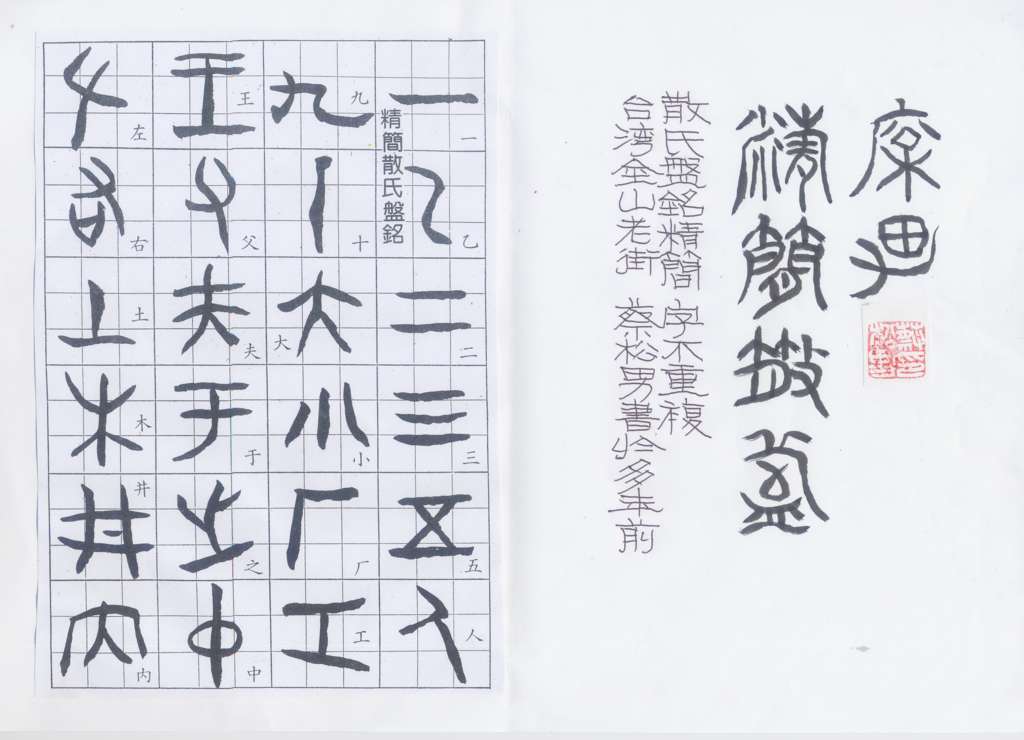 精簡散盤
散氏盤銘精簡 字不重複
台湾金山老街 蔡松男書於多年前
精簡散氏盤銘
一
乙
二
三
五
人
九
十
大
小
厂
工
王
父
夫
于
之
中
左
右
土
木
井
内